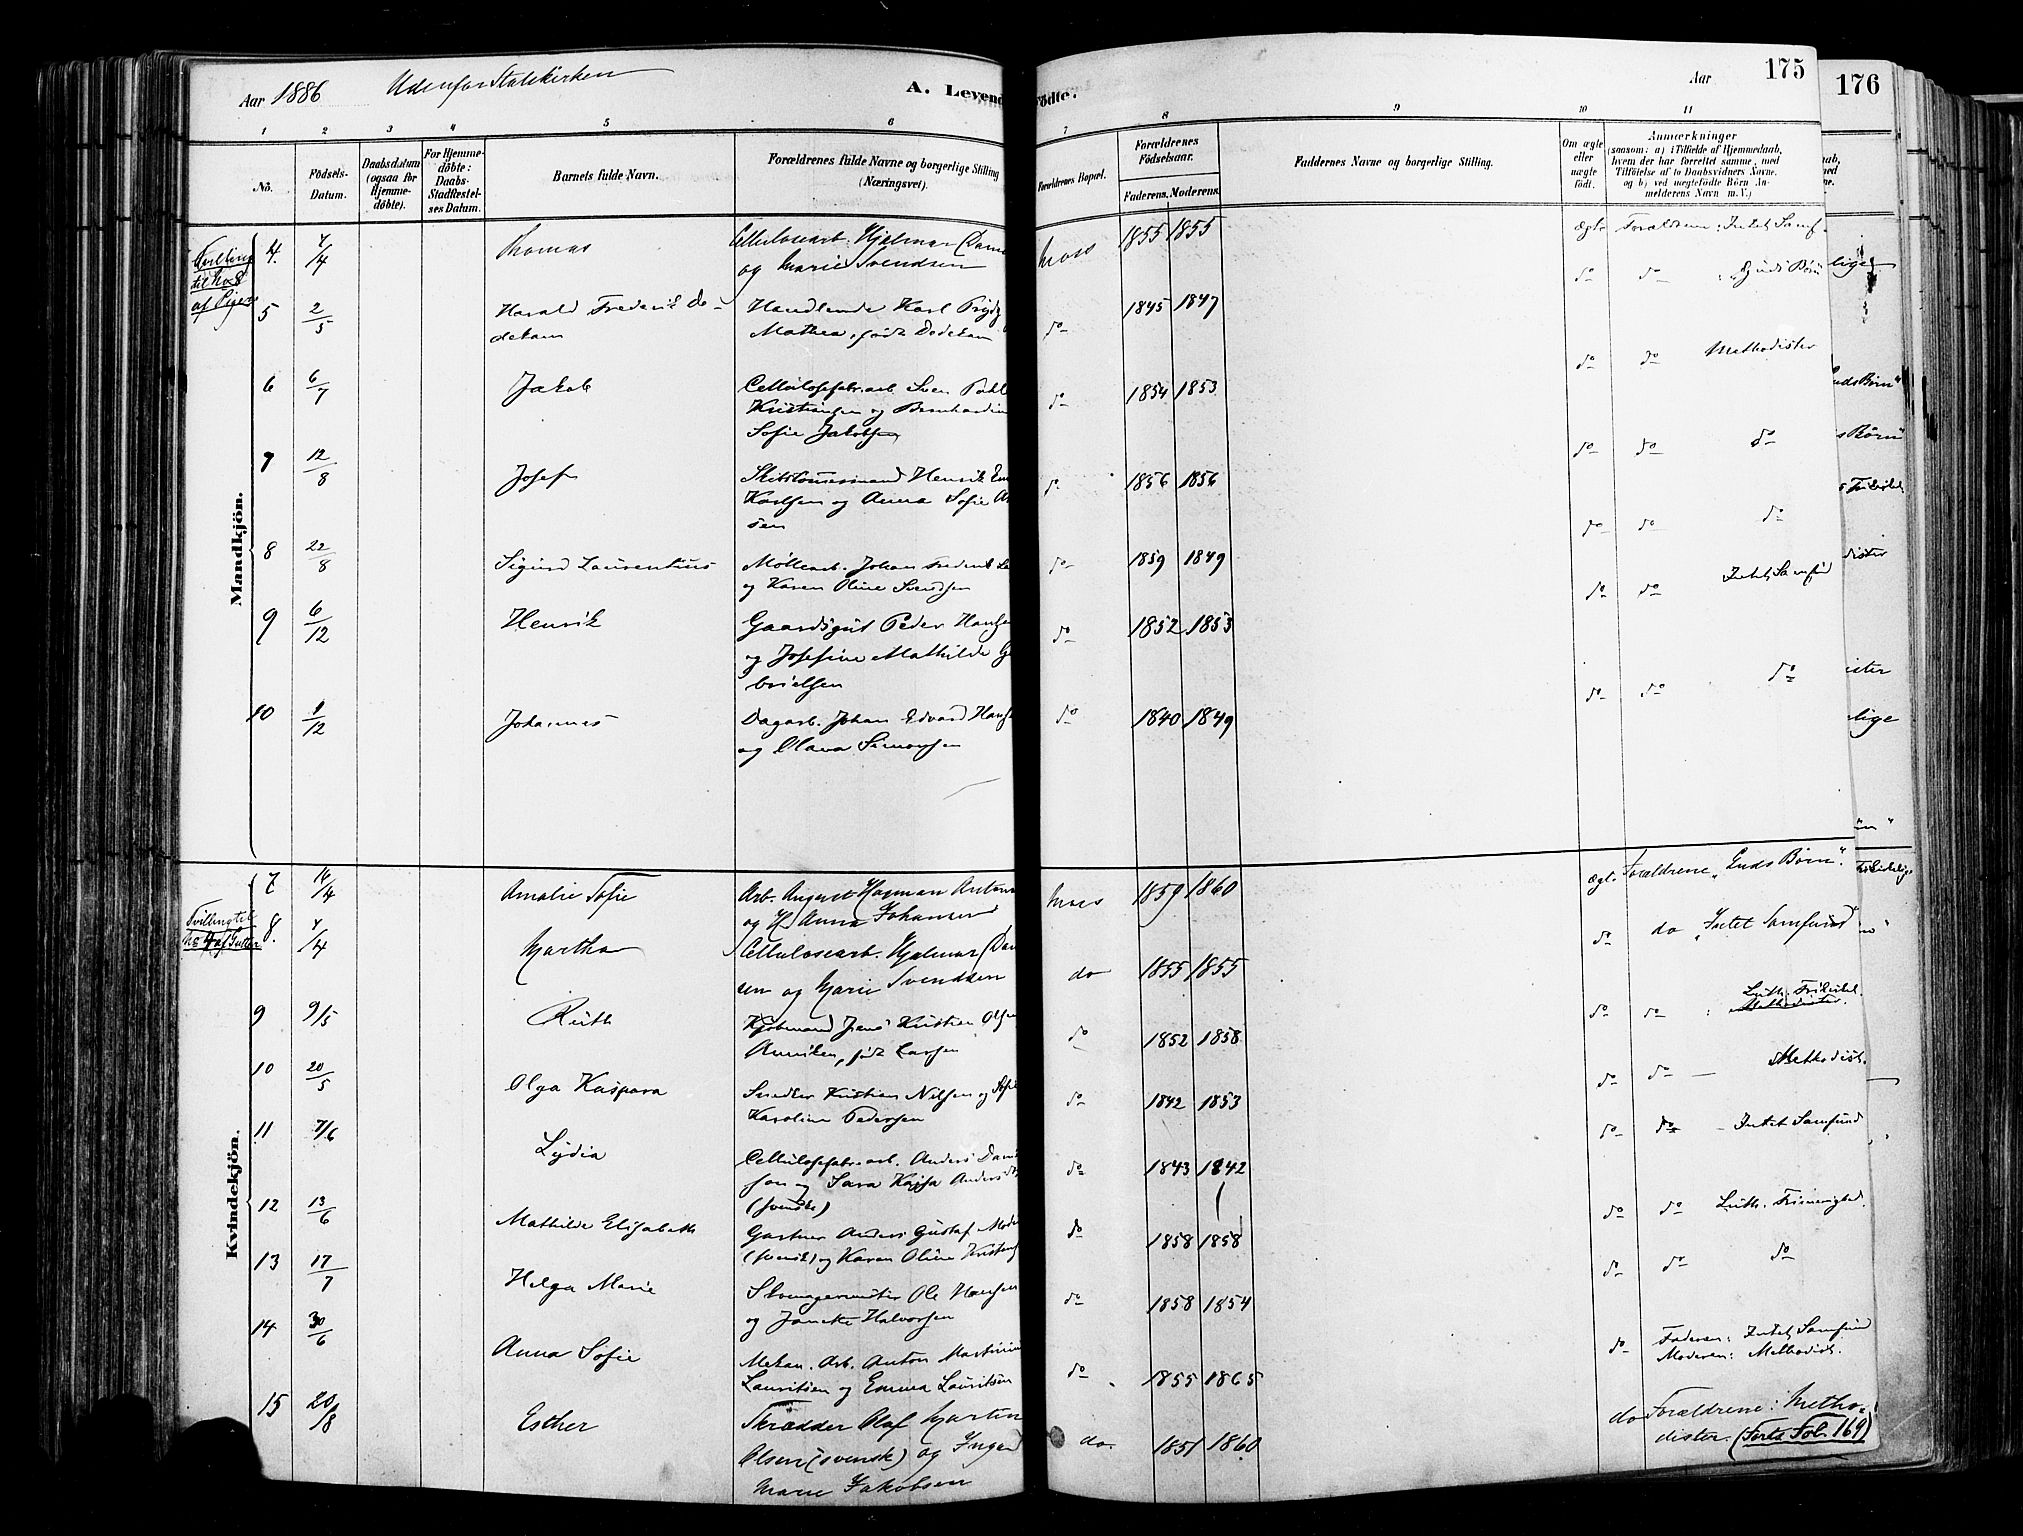 Aar 1886 Udenfor Statskirken
A. Levende Födte.
Aar 175
176
1 2 3 4 5 6 7 8 9 10 11
No.
Födsels-Datum.
Daabsdatum (ogsaa for Hjemmedöbte).
For Hjemmedöbte: Daabs-Stadfæstelses Datum.
Barnets fulde Navn.
Forældrenes fulde Navne og borgerlige Stilling (Næringsvei).
Forældrenes Bopæl.
Forældrenes Födselsaar.
Faderens. Moderens.
Faddernes Navne og borgerlige Stilling.
Om ægte eller uægte födt.
Anmærkninger
(saasom: a) i Tilfælde af Hjemmedaab, hvem der har forrettet samme, med Tilföielse af to Daabsvidners Navne, og b) ved uægtefödte Börn Anmelderens Navn m. V.)
Mandkjön.
Tvilling til No 8 af Piger
4. 4/4 Thomas Cellulosearb. Hjalmar Dan og Marie Svendsen Moss 1855 1855 ægte Forældrene: Intet Samf.
5 2/5 Harald Frederik Dedekam Handlende Karl Mathea, født Dedekam do 1845 1847 do do : "Guds Børn
6 6/7 Jakob Cellulosefabr.arb. Sven Kristiansen og Bernhardin Sofie Jakobsen do 1854 1853 do do Methodister
7 12/8 Josef Skibstømmermand Henrik Karlsen og Anna Sofie sen do 1856 1856 do do do
8 22/8 Sigurd Laurentius Møllearb. Johan Frederik og Karen Oline Svendsen do 1859 1849 do do do
9 6/12 Henrik Gaardsgut Peder Hansen og Josefine Mathilde Ga brielsen do 1852 1853 do do Intet Samfund
10 1/12 Johannes Dagarb. Johan Edvard Hansen og Olava Simonsen do 1840 1849 do do do
Kvindekjön.
7. 14/4 Amalie Sofie Arb. August Hagman Anton og H Anna Johansen Moss 1859 1860 ægt. Forældrene "Guds Børn".
Tvilling til No 4 af Gutter
8. 4/4 Martha Cellulosearb. Hjalmar Dan sen og Marie Svendsen do 1855 1855 do do "Intet Samfund"
9 9/5 Ruth Kjøbmand Jens Kristian Olsen Anniken, født Larsen do 1852 1858 do do : Luth. Frikirkel. Methodister.
10 20/5 Olga Kaspara Snedker Kristian Nilsen og Sofie Karoline Pedersen do 1842 1853 do do — Methodist.
11 7/6 Lydia Cellulosefabr.arb. Anders Dani son og Sara Kajsa Anders (svenske) do 1843 1842 do do - Intet Samfund
12 13/6 Mathilde Elisabeth Gartner Anders Gustaf Mod (svensk) og Karen Oline Kristens do 1858 1858 do do Luth. Frimenighed.
13 17/7 Helga Marie Skomagermester Ole Hansen og Halvorsen do 1858 1854 do do do
14 30/6 Anna Sofie Mekan. Arb. Anton Martinius Lauritsen og Emma Lauritsen do 1855 1865 do Faderen: Intet Samfund Moderen: Methodist.
15 20/8 Esther Skrædder Olaf Martin Olsen (svensk) og Inger Marie Jakobsen do. 1851 1860 do Forældrene: Methodister. (Forts. Fol. 169)